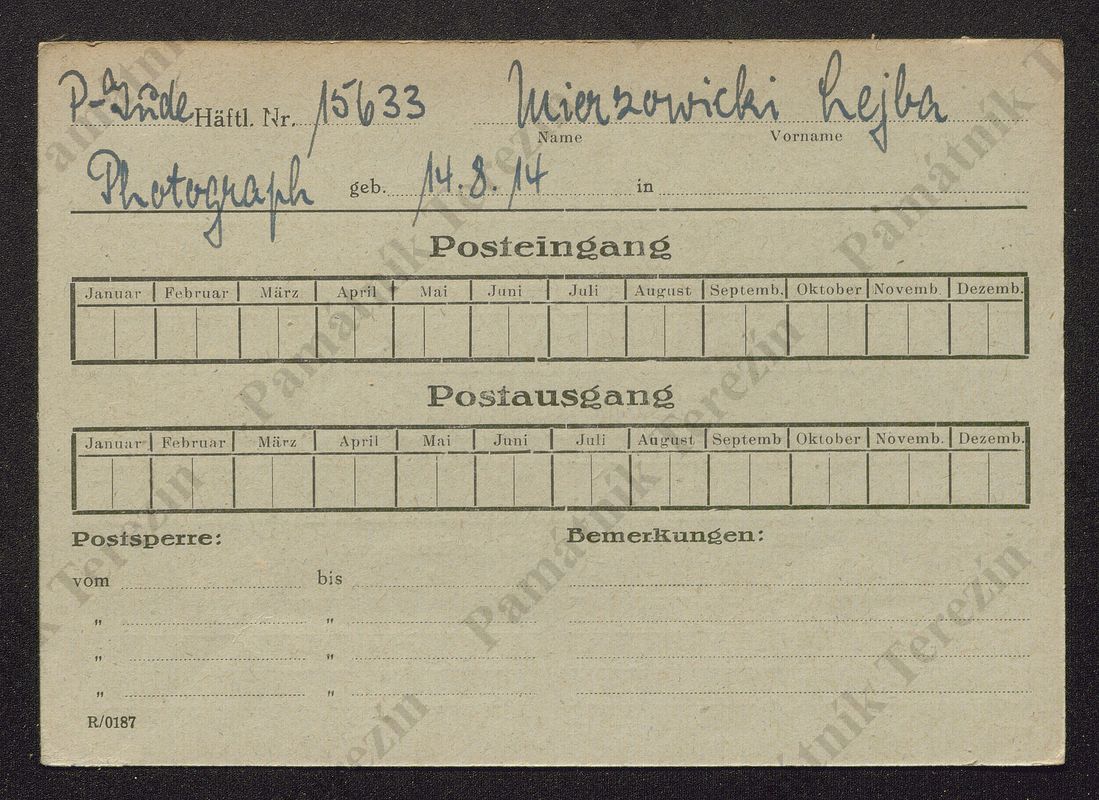 P-Jude Häftl. Nr. 15633 Mierzowicki Lejba
Name Vorname
Photograph geb. 14.8.14 in
Posteingang
Januar Februar März April Mai Juni Juli August Septemb. Oktober Novemb. Dezemb.
Postausgang
Januar Februar März April Mai Juni Juli August Septemb Oktober Novemb. Dezemb.
Postsperre: Bemerkungen:
vom bis
" "
" "
" "
R/0187
Památník Terezín